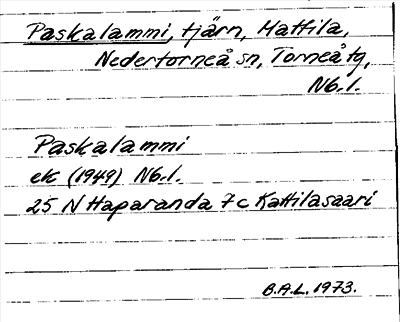 Paskalammi, tjärn, Mattila,
Nedertorneå sn, Torneå tg,
Nb.l.
Paskalammi
ek (1949) Nb.l.
25 N Haparanda 7c Kattilasaari
B.A.L. 1973.